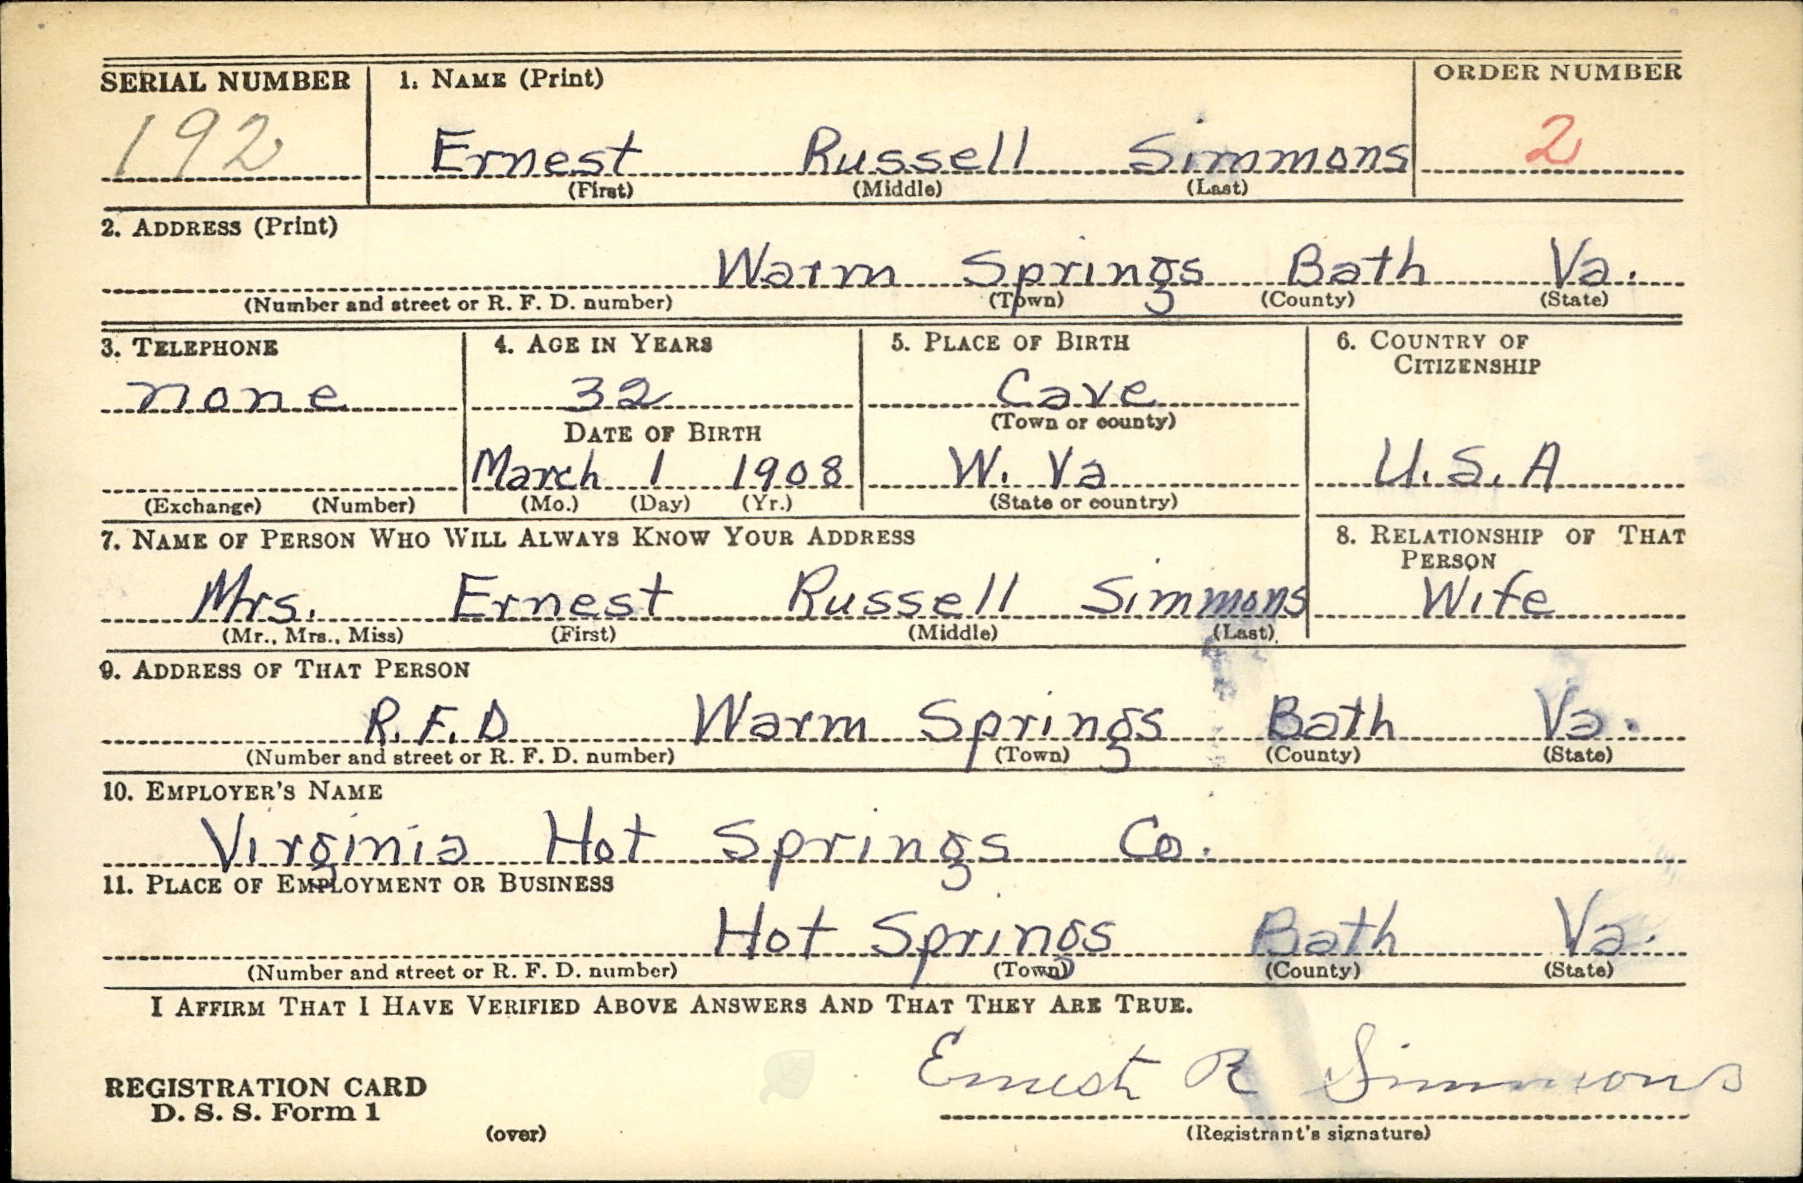 SERIAL NUMBER 1. NAME (Print) ORDER NUMBER
192 Ernest Russell Simmons 2
(First) (Middle) (Last)
2. ADDRESS (Print)
Warm Springs Bath Va.
(Number and street or R. F. D. number) (Town) (County) (State)
3. TELEPHONE 4. AGE IN YEARS 5. PLACE OF BIRTH 6. COUNTRY OF
CITIZENSHIP
none 32 Cave
(Town or county)
DATE OF BIRTH
March 1 1908 W. Va U.S.A
(Exchange) (Number) (Mo.) (Day) (Yr.) (State or country)
7. NAME OF PERSON WHO WILL ALWAYS KNOW YOUR ADDRESS 8. RELATIONSHIP OF THAT
PERSON
Mrs. Ernest Russell Simmons Wife
(Mr., Mrs., Miss) (First) (Middle) (Last)
9. ADDRESS OF THAT PERSON
R.F.D Warm Springs Bath Va.
(Number and street or R. F. D. number) (Town) (County) (State)
10. EMPLOYER'S NAME
Virginia Hot Springs Co.
11. PLACE OF EMPLOYMENT OR BUSINESS
Hot Springs Bath Va.
(Number and street or R. F. D. number) (Town) (County) (State)
I AFFIRM THAT I HAVE VERIFIED ABOVE ANSWERS AND THAT THEY ARE TRUE.
Ernest R Simmons
REGISTRATION CARD
D. S. S. Form 1
(over) (Registrant's signature)